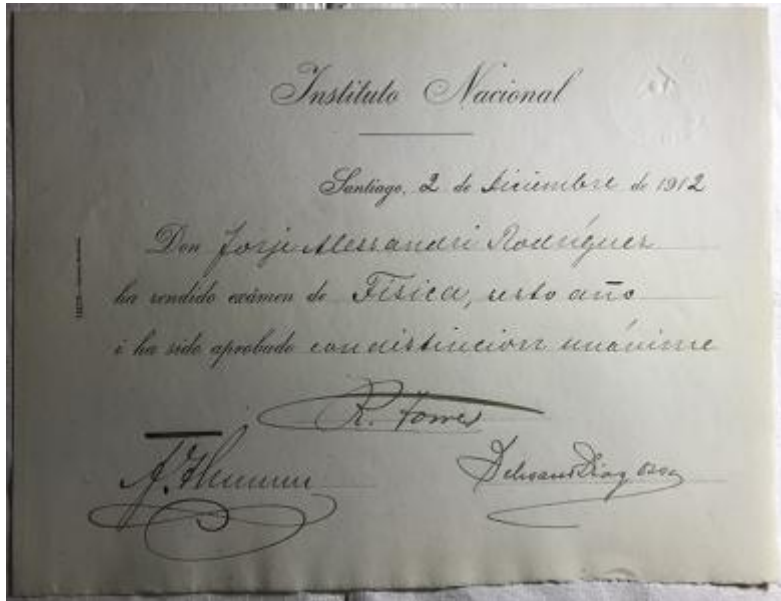 Instituto Nacional
Santiago, 2 de diciembre de 1912
Don Jorje Alessandri Rodríguez
ha rendido exámen de Física, sesto año
i ha sido aprobado con distincion unánime
R. Torres